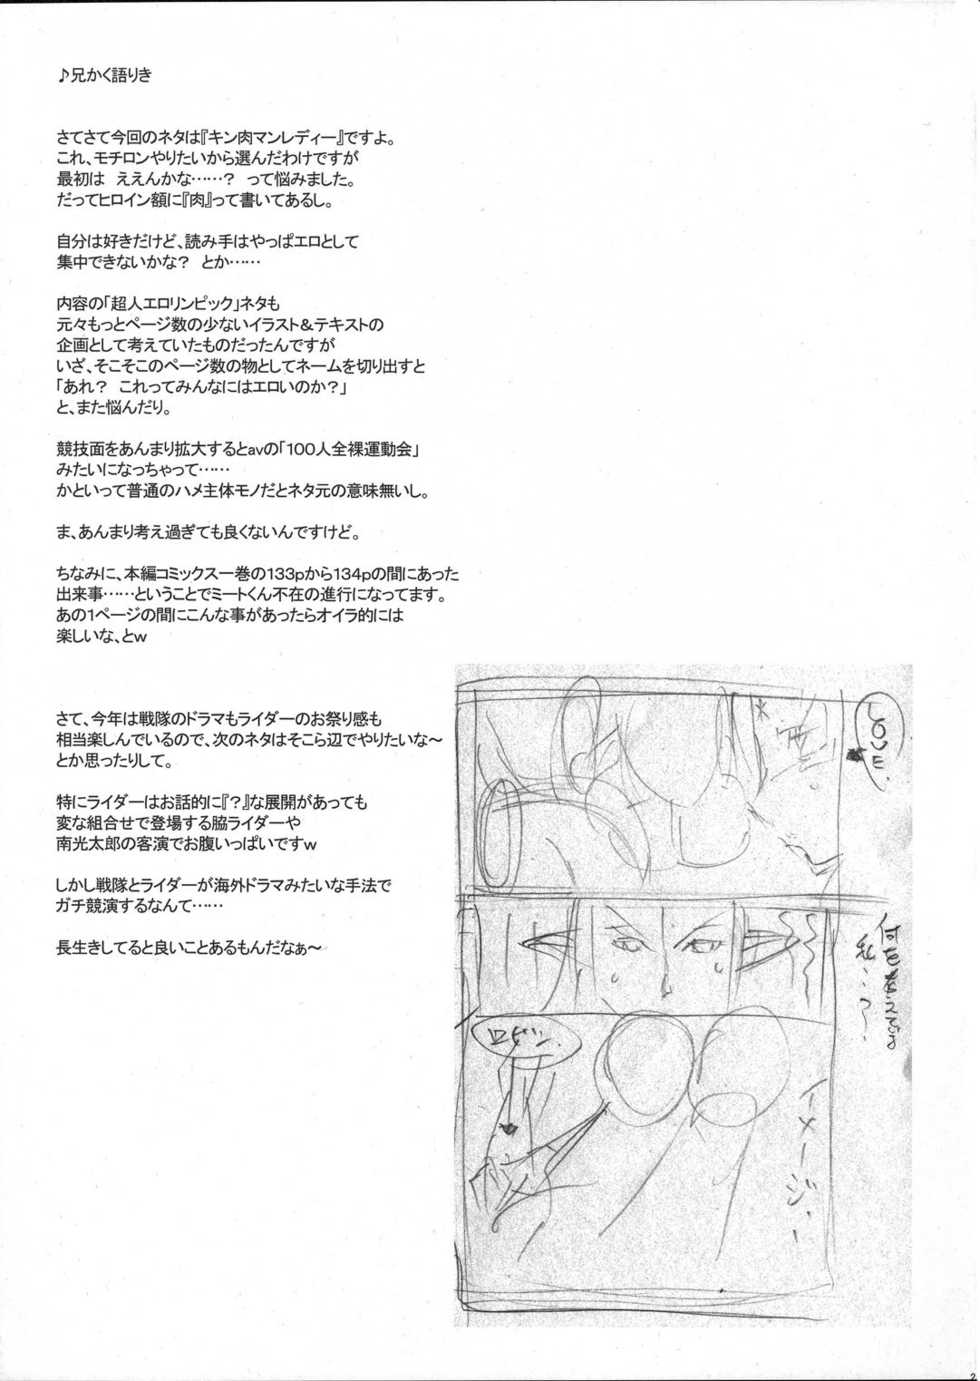 ♪兄かく語りき
さてさて今回のネタは『キン肉マンレディー』ですよ。
これ、モチロンやりたいから選んだわけですが
最初は　ええんかな……？　って悩みました。
だってヒロイン額に『肉』って書いてあるし。
自分は好きだけど、読み手はやっぱエロとして
集中できないかな？　とか……
内容の「超人エロリンピック」ネタも
元々もっとページ数の少ないイラスト＆テキストの
企画として考えていたものだったんですが
いざ、そこそこのページ数の物としてネームを切り出すと
「あれ？　これってみんなにはエロいのか？」
と、また悩んだり。
競技面をあんまり拡大するとavの「100人全裸運動会」
みたいになっちゃって……
かといって普通のハメ主体モノだとネタ元の意味無いし。
ま、あんまり考え過ぎても良くないんですけど。
ちなみに、本編コミックス一巻の133pから134pの間にあった
出来事……ということでミートくん不在の進行になってます。
あの1ページの間にこんな事があったらオイラ的には
楽しいな、とw
さて、今年は戦隊のドラマもライダーのお祭り感も
相当楽しんでいるので、次のネタはそこら辺でやりたいな～
とか思ったりして。
特にライダーはお話的に『？』な展開があっても
変な組合せで登場する脇ライダーや
南光太郎の客演でお腹いっぱいですw
しかし戦隊とライダーが海外ドラマみたいな手法で
ガチ競演するなんて……
長生きしてると良いことあるもんだなぁ～
LOVE.
私…？
ロビン.
イメージ.